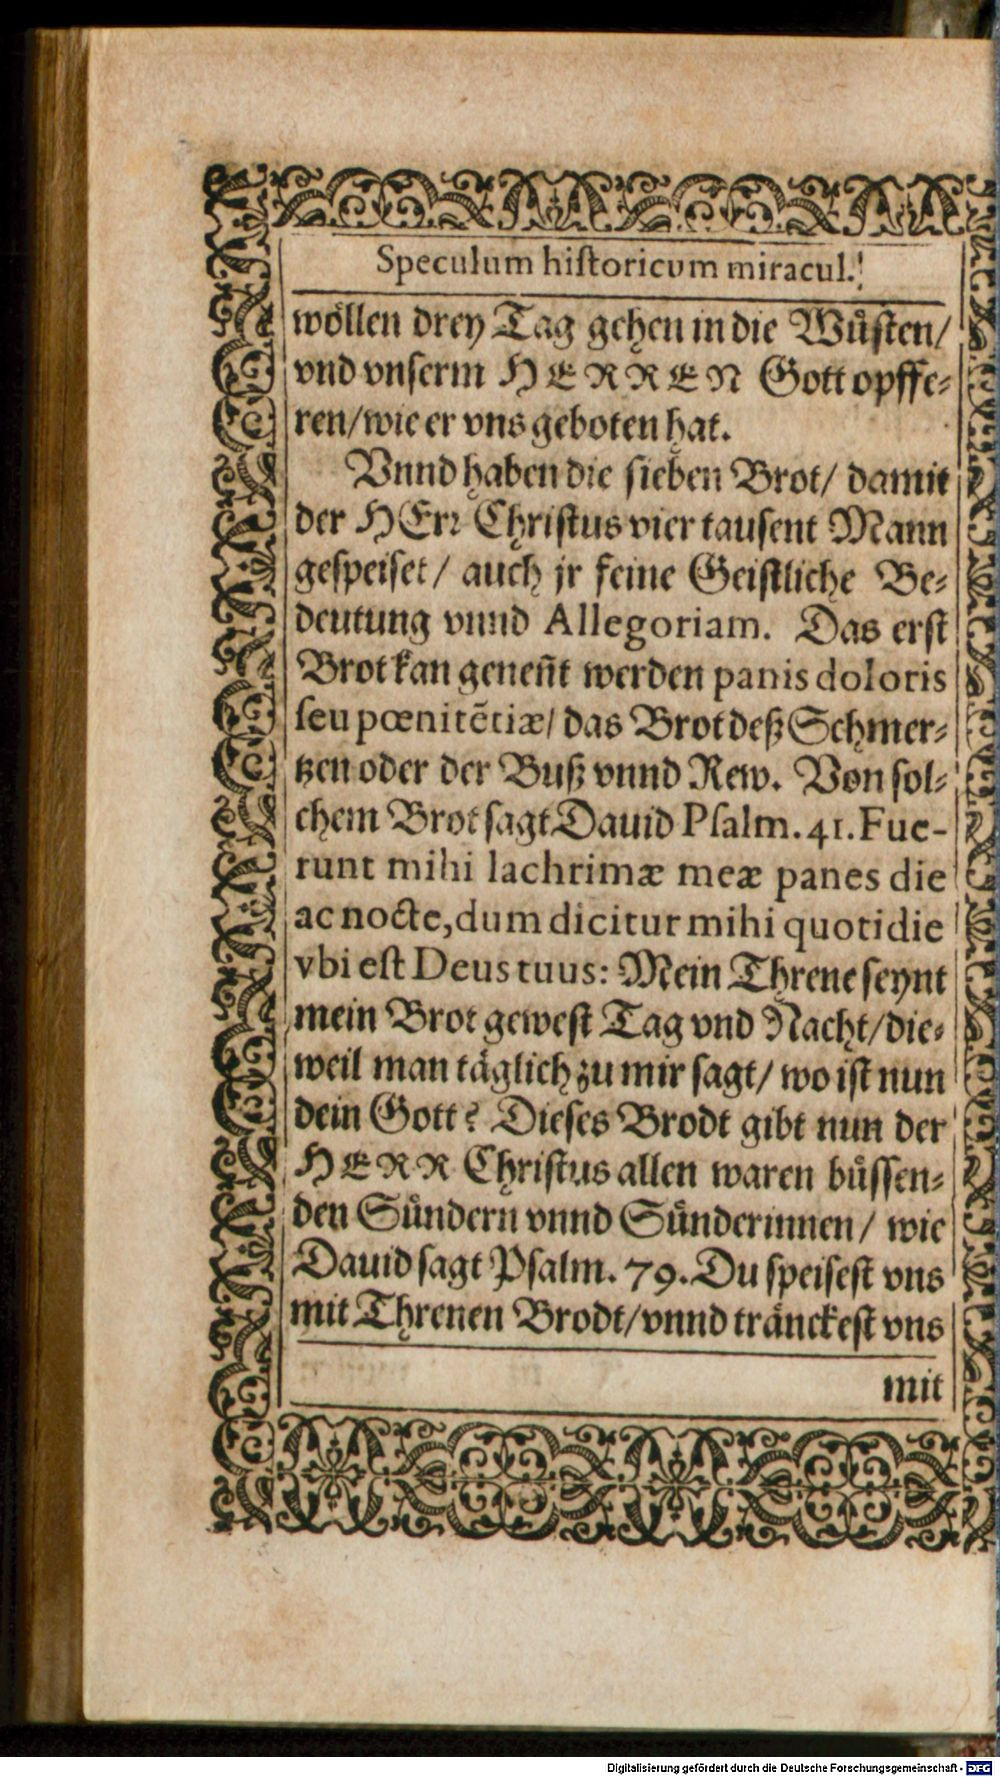 Speculum historicum miracul.
wöllen drey Tag gehen in die Wüsten/
vnd vnserm HERREN Gott opffe-
ren/wie er vns geboten hat.
Vnnd haben die sieben Brot/ damit
der HErr Christus vier tausent Mann
gespeiset/ auch jr feine Geistliche Be-
deutung vnnd Allegoriam. Das erst
Brot kan geneñt werden panis doloris
seu pœnitẽtiæ/ das Brot deß Schmer-
tzen oder der Buß vnnd Rew. Von sol-
chem Brot sagt Dauid Psalm. 41. Fue-
runt mihi lachrimæ meæ panes die
ac nocte, dum dicitur mihi quotidie
vbi est Deus tuus: Mein Threne seynt
mein Brot gewest Tag vnd Nacht/die-
weil man täglich zu mir sagt/ wo ist nun
dein Gott? Dieses Brodt gibt nun der
HERR Christus allen waren büssen-
den Sündern vnnd Sünderinnen/ wie
Dauid sagt Psalm. 79. Du speisest vns
mit Threnen Brodt/vnnd tränckest vns
mit
Digitalisierung gefördert durch die Deutsche Forschungsgemeinschaft - DFG